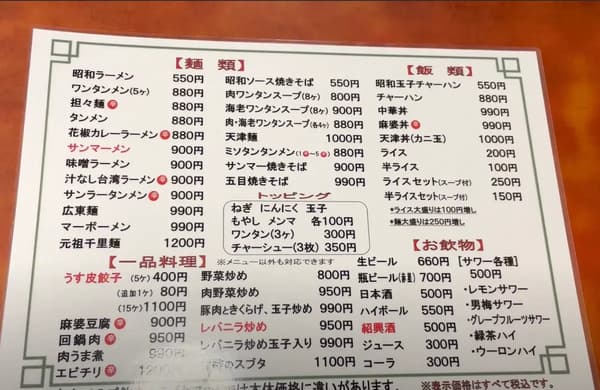 【麺類】
昭和ラーメン 550円
ワンタンメン(5ヶ) 880円
担々麺 辛 880円
タンメン 880円
花椒カレーラーメン 辛 880円
サンマーメン 900円
味噌ラーメン 900円
汁なし台湾ラーメン 辛 900円
サンラータンメン 辛 900円
広東麺 990円
マーボーメン 990円
元祖千里麺 1200円
昭和ソース焼きそば 550円
肉ワンタンスープ(8ヶ) 800円
海老ワンタンスープ(8ヶ) 900円
肉・海老ワンタンスープ(各4ヶ) 880円
天津麺 1000円
ミソタンタンメン(1辛~5辛) 880円
サンマー焼きそば 900円
五目焼きそば 990円
トッピング
ねぎ にんにく 玉子
もやし メンマ 各100円
ワンタン(3ヶ) 300円
チャーシュー(3枚) 350円
【飯類】
昭和玉子チャーハン 550円
チャーハン 880円
中華丼 990円
麻婆丼 辛 990円
天津丼(カニ玉) 1000円
ライス 200円
半ライス 100円
ライスセット(スープ付) 250円
半ライスセット(スープ付) 150円
*ライス大盛りは100円増し
*麺大盛りは250円増し
【一品料理】 ※メニュー以外も対応できます
うす皮餃子 (5ヶ) 400円
(追加1ヶ) 80円
(15ヶ) 1100円
麻婆豆腐 辛 900円
回鍋肉 辛 950円
肉うま煮 990円
エビチリ 辛
野菜炒め 800円
肉野菜炒め 950円
豚肉ときくらげ、玉子炒め 990円
レバニラ炒め 950円
レバニラ炒め玉子入り 990円
スブタ 1100円
【お飲物】
生ビール 660円
瓶ビール 700円
日本酒 500円
ハイボール 550円
紹興酒 500円
ジュース 300円
コーラ 300円
[サワー各種]
500円
・レモンサワー
・男梅サワー
・グレープフルーツサワー
・緑茶ハイ
・ウーロンハイ
は本体価格に違いがあります。
※表示価格はすべて税込です。